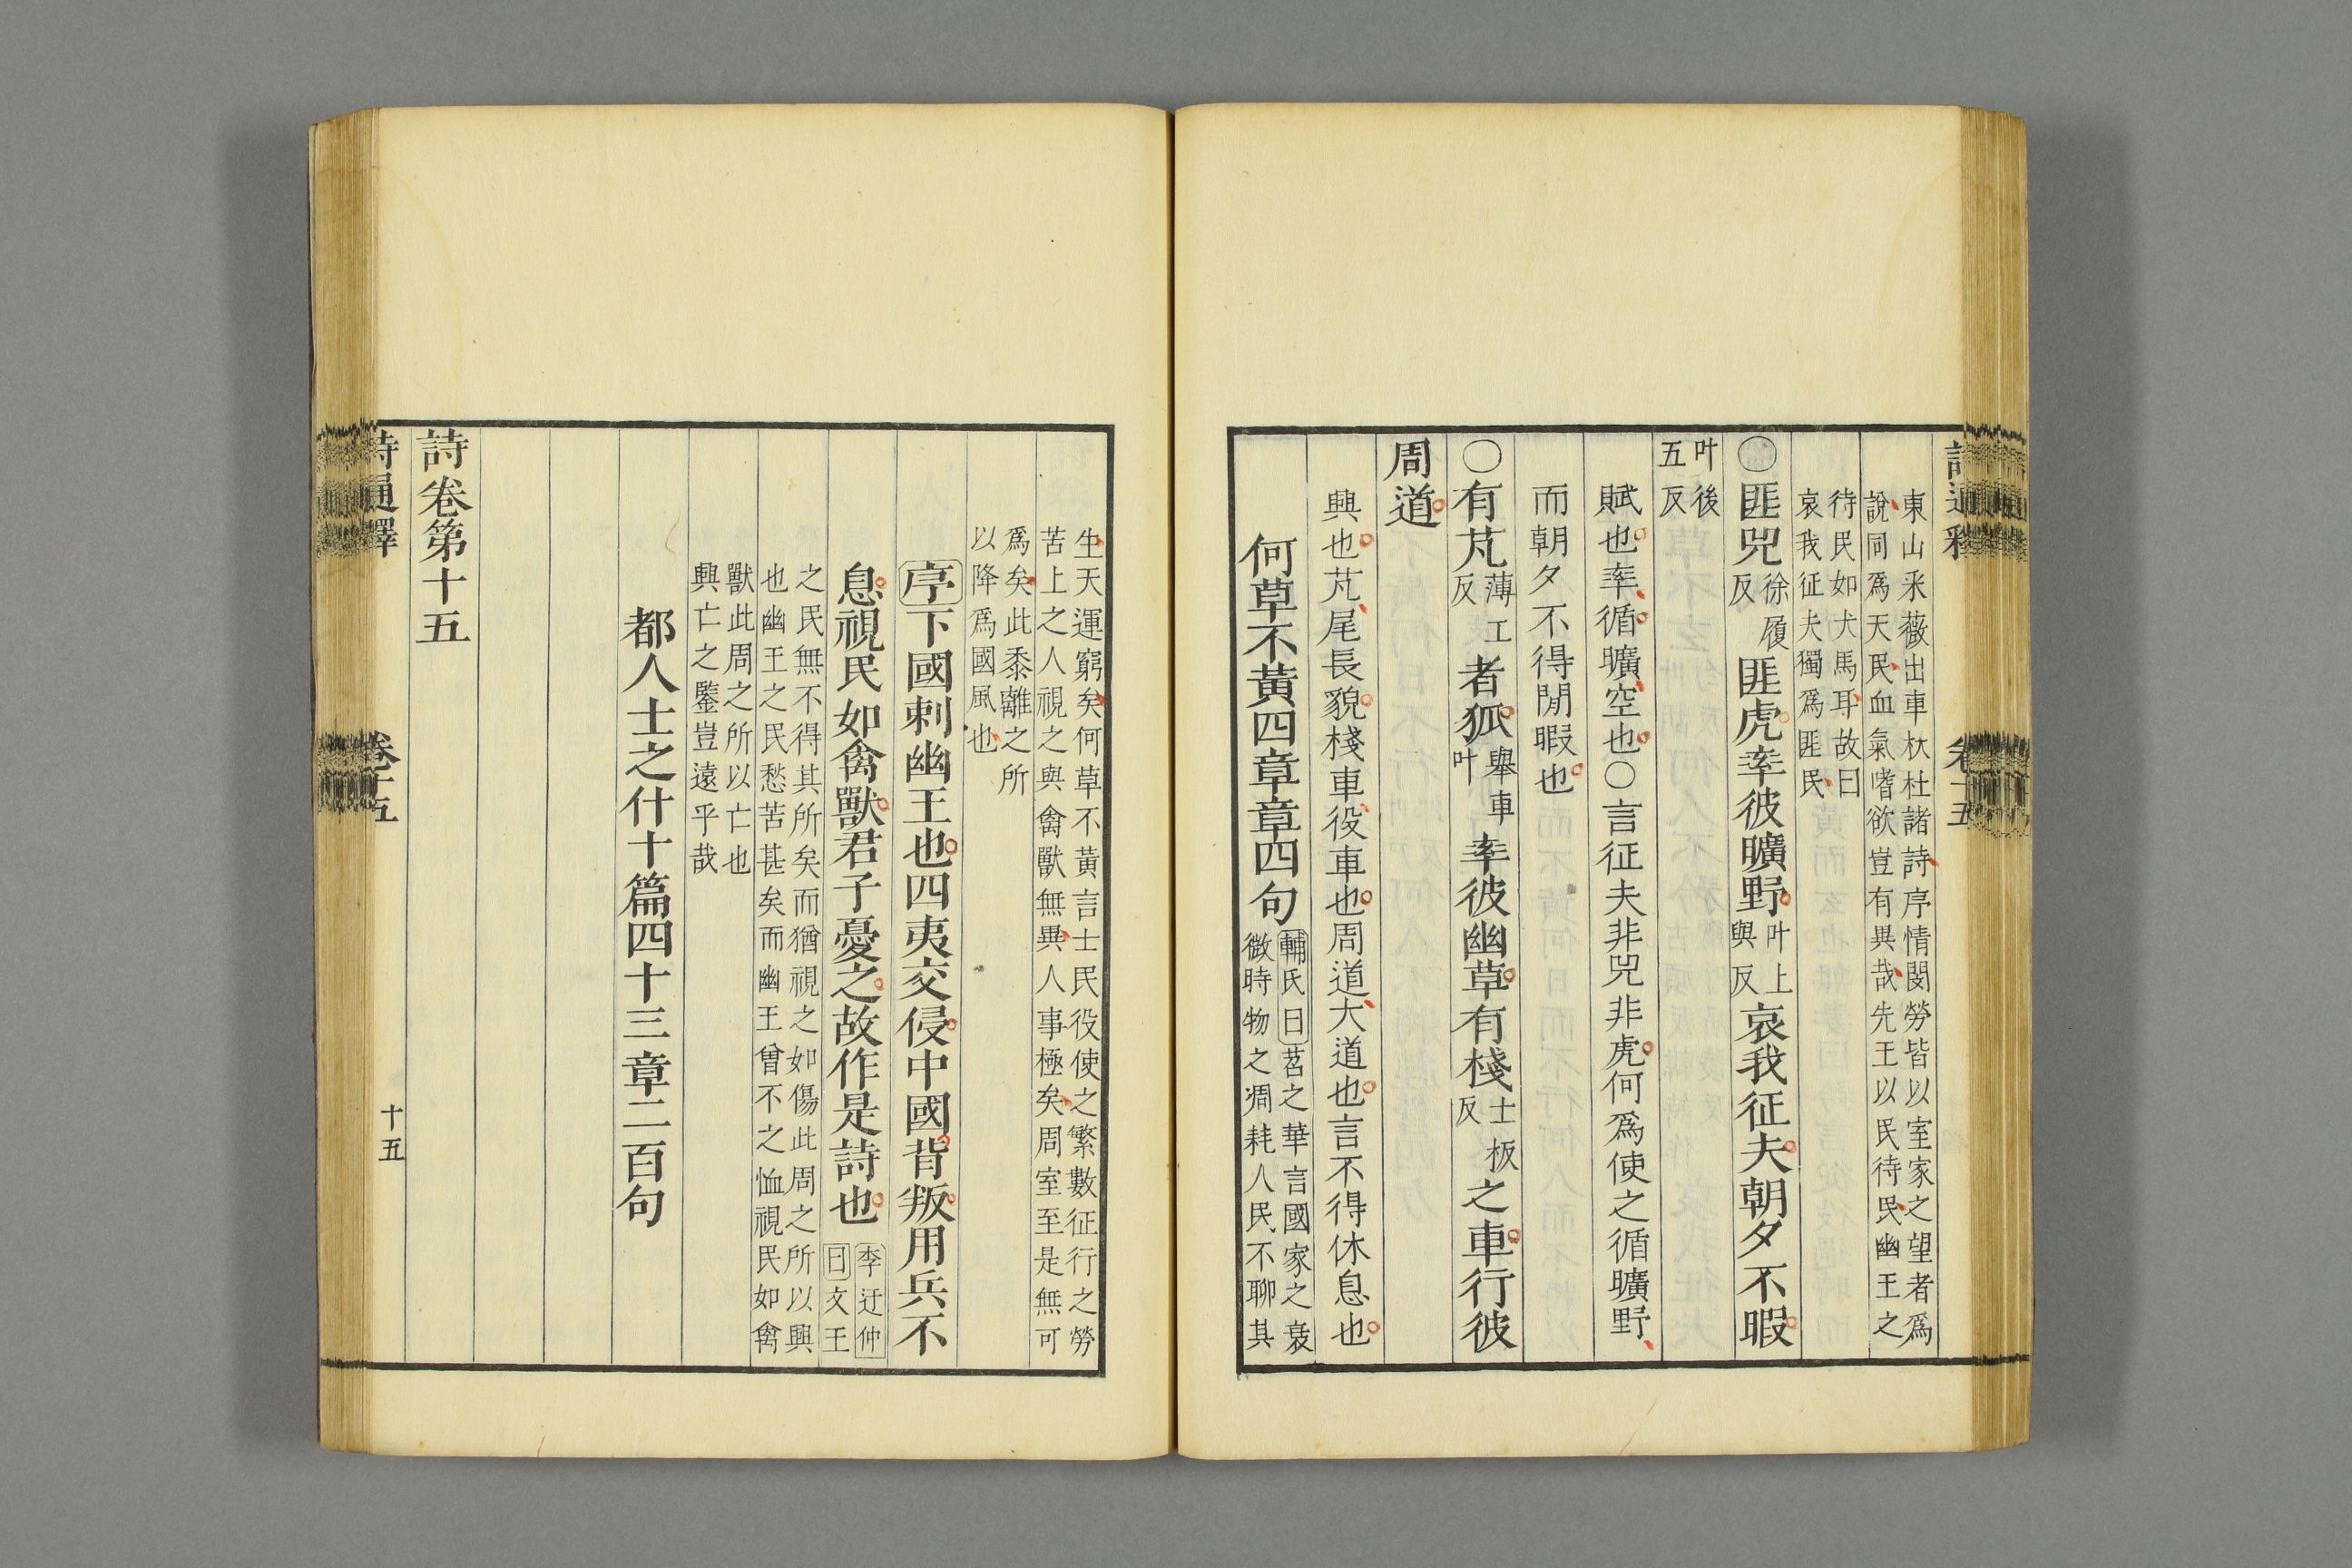 東山采薇出車杕杜諸詩序情閔勞皆以室家之望者爲
說同爲天民血氣嗜欲豈有異哉先王以民待民幽王之
待民如犬馬耳故曰
哀我征夫獨爲匪民
○匪兕徐履反匪虎率彼曠野叶上與反哀我征夫朝夕不暇
叶後五反
賦也率循曠空也○言征夫非兕非虎何爲使之循曠野
而朝夕不得閒暇也
○有芃薄工反者狐叶舉車率彼幽草有棧士板反之車行彼
周道
興也芃尾長貌棧車役車也周道大道也言不得休息也
何草不黃四章章四句輔氏曰苕之華言國家之衰
微時物之凋耗人民不聊其
生天運窮矣何草不黃言士民役使之繁數征行之勞
苦上之人視之與禽獸無異人事極矣周室至是無可
爲矣此黍離之所
以降爲國風也
序下國刺幽王也四夷交侵中國背叛用兵不
息視民如禽獸君子憂之故作是詩也李迂仲曰文王
之民無不得其所矣而猶視之如傷此周之所以興
也幽王之民愁苦甚矣而幽王曾不之恤視民如禽
獸此周之所以亡也
興亡之鑒豈遠乎哉
都人士之什十篇四十三章二百句
詩卷第十五
詩通釋
卷十五
十五